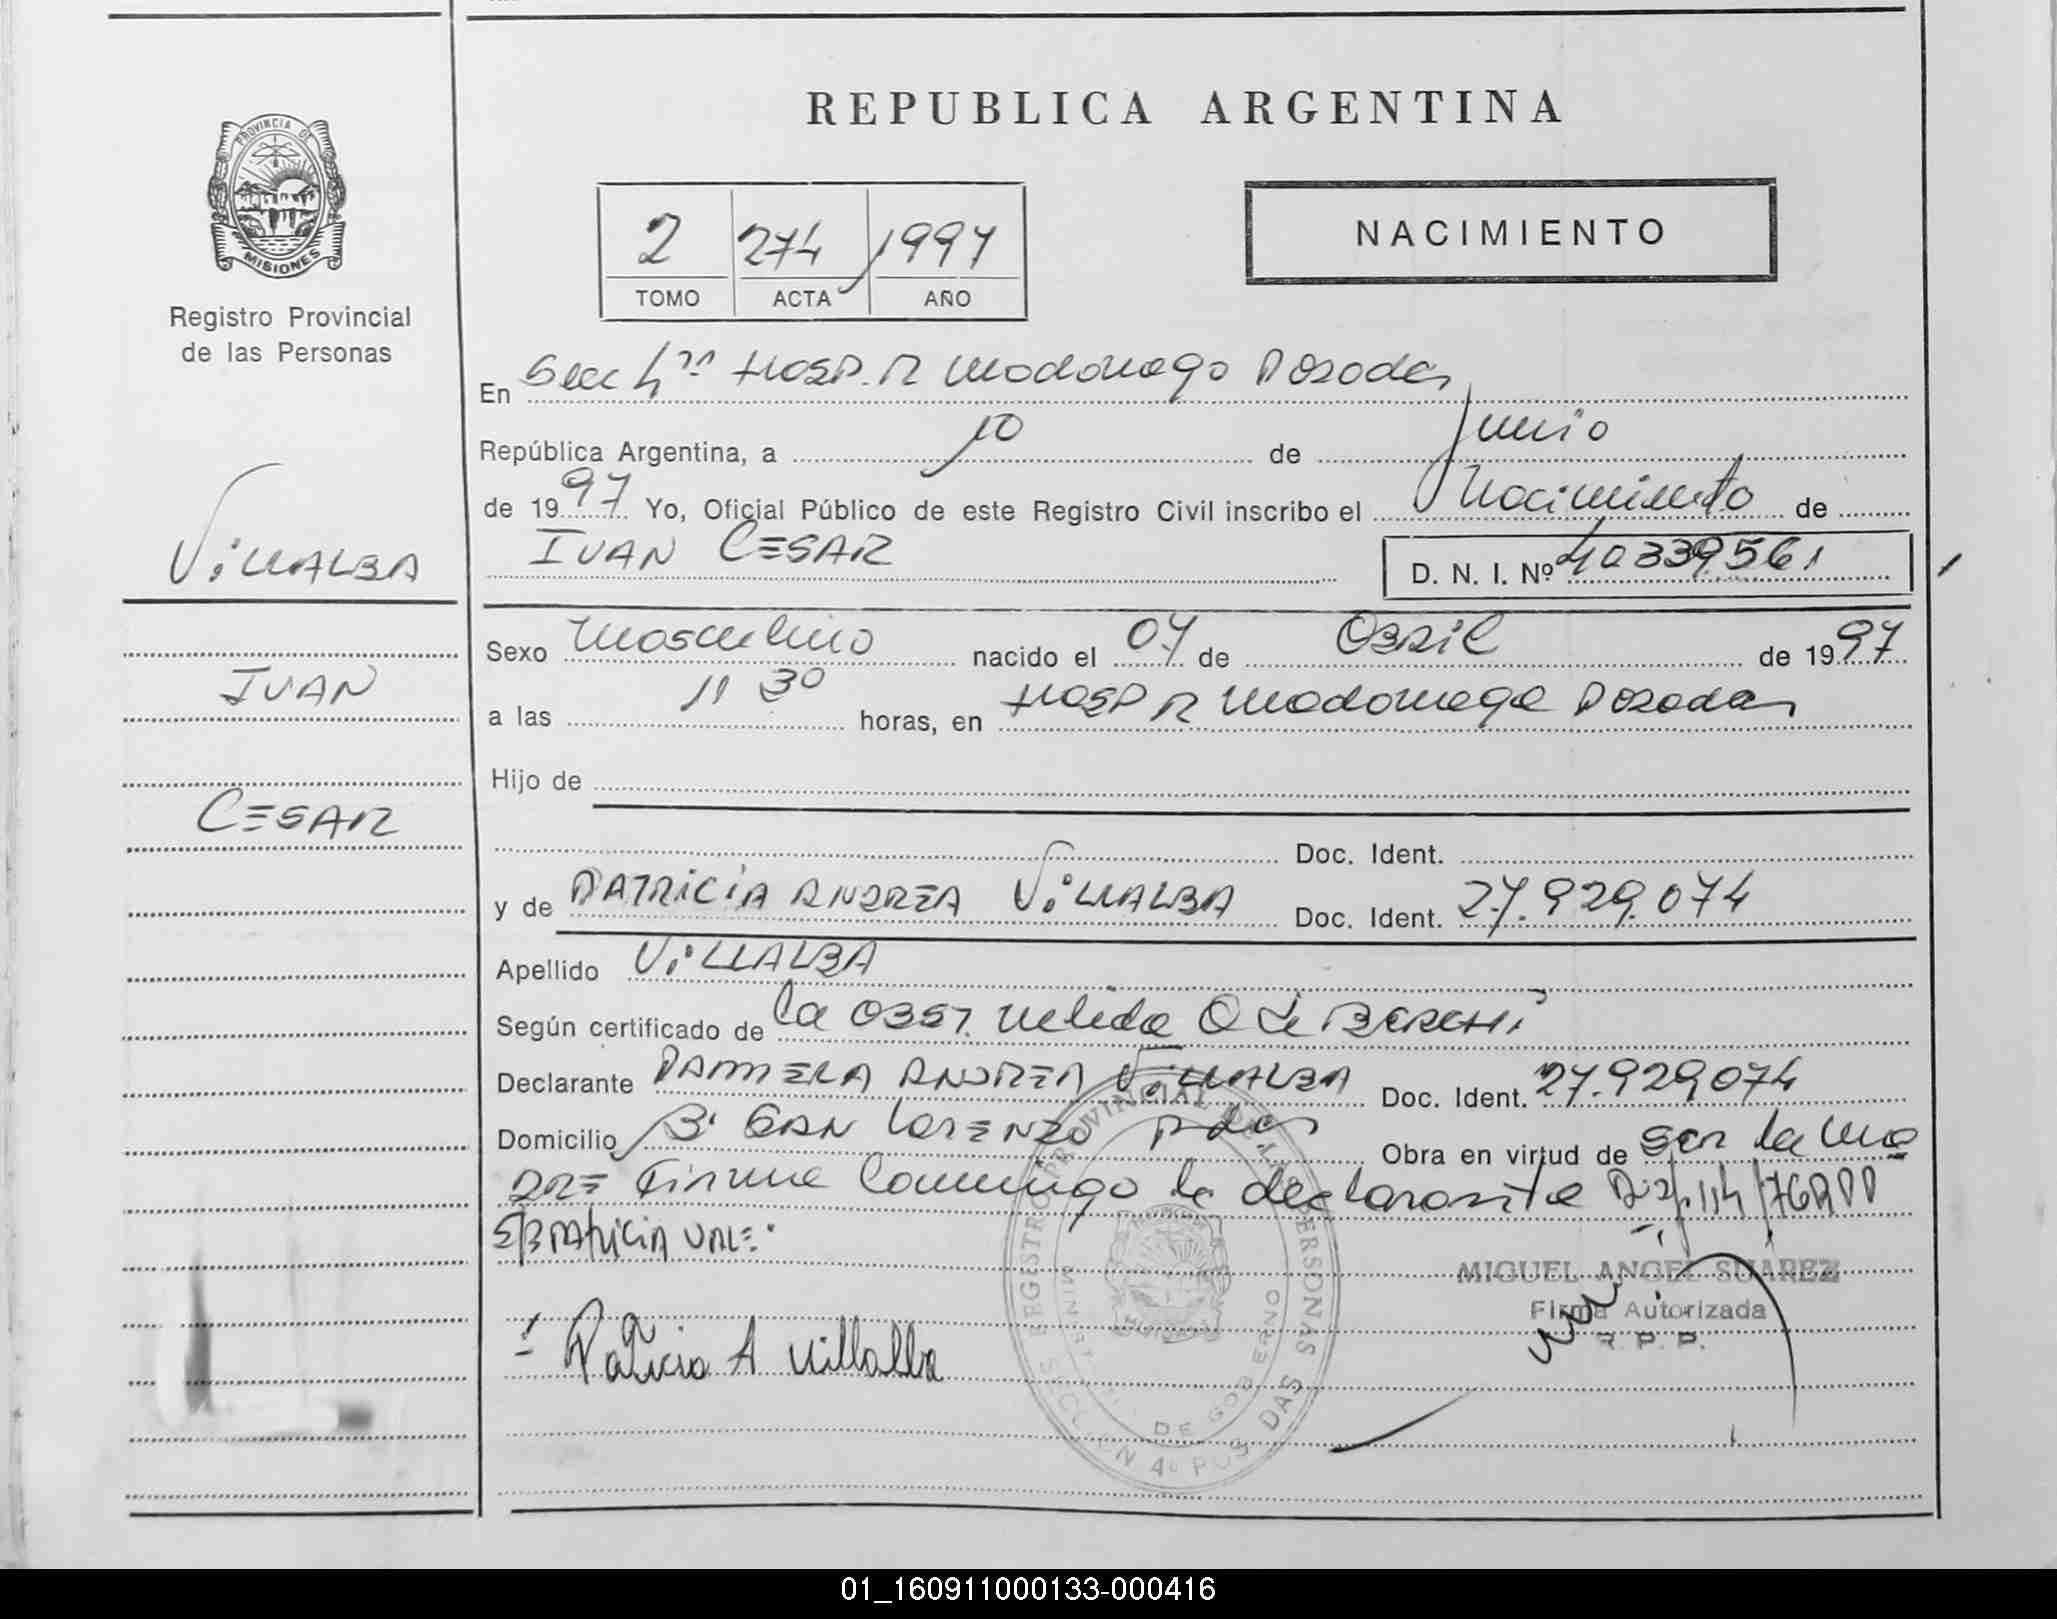 REPUBLICA ARGENTINA
PROVINCIA DE
MISIONES
Registro Provincial
de las Personas
2 274 1997
TOMO ACTA AÑO
NACIMIENTO
En Secc 4ta Hosp. R Madariaga Posadas
República Argentina, a 10 de Junio
de 1997 Yo, Oficial Público de este Registro Civil inscribo el Nacimiento de
IVAN CESAR D. N. I. Nº 40339561
VILLALBA
IVAN
CESAR
Sexo Masculino nacido el 07 de Abril de 1997
a las 11 30 horas, en Hosp R Madariaga Posadas
Hijo de
Doc. Ident.
y de PATRICIA ANDREA VILLALBA Doc. Ident. 27.929.074
Apellido VILLALBA
Según certificado de la Obst. Nelida
Declarante ANDREA VILLALBA Doc. Ident. 27.929074
Domicilio Bº SAN LORENZO Pdas Obra en virtud de ser la ma
dre Firma conmigo la declarante
PATRICIA VALE.
Patricia A Villalba
MIGUEL ANGEL SUAREZ
Firma Autorizada
R. P. P.
REGISTRO PROVINCIAL DE LAS PERSONAS
MINISTERIO DE GOBIERNO
SECCION 4º POSADAS
01_160911000133-000416